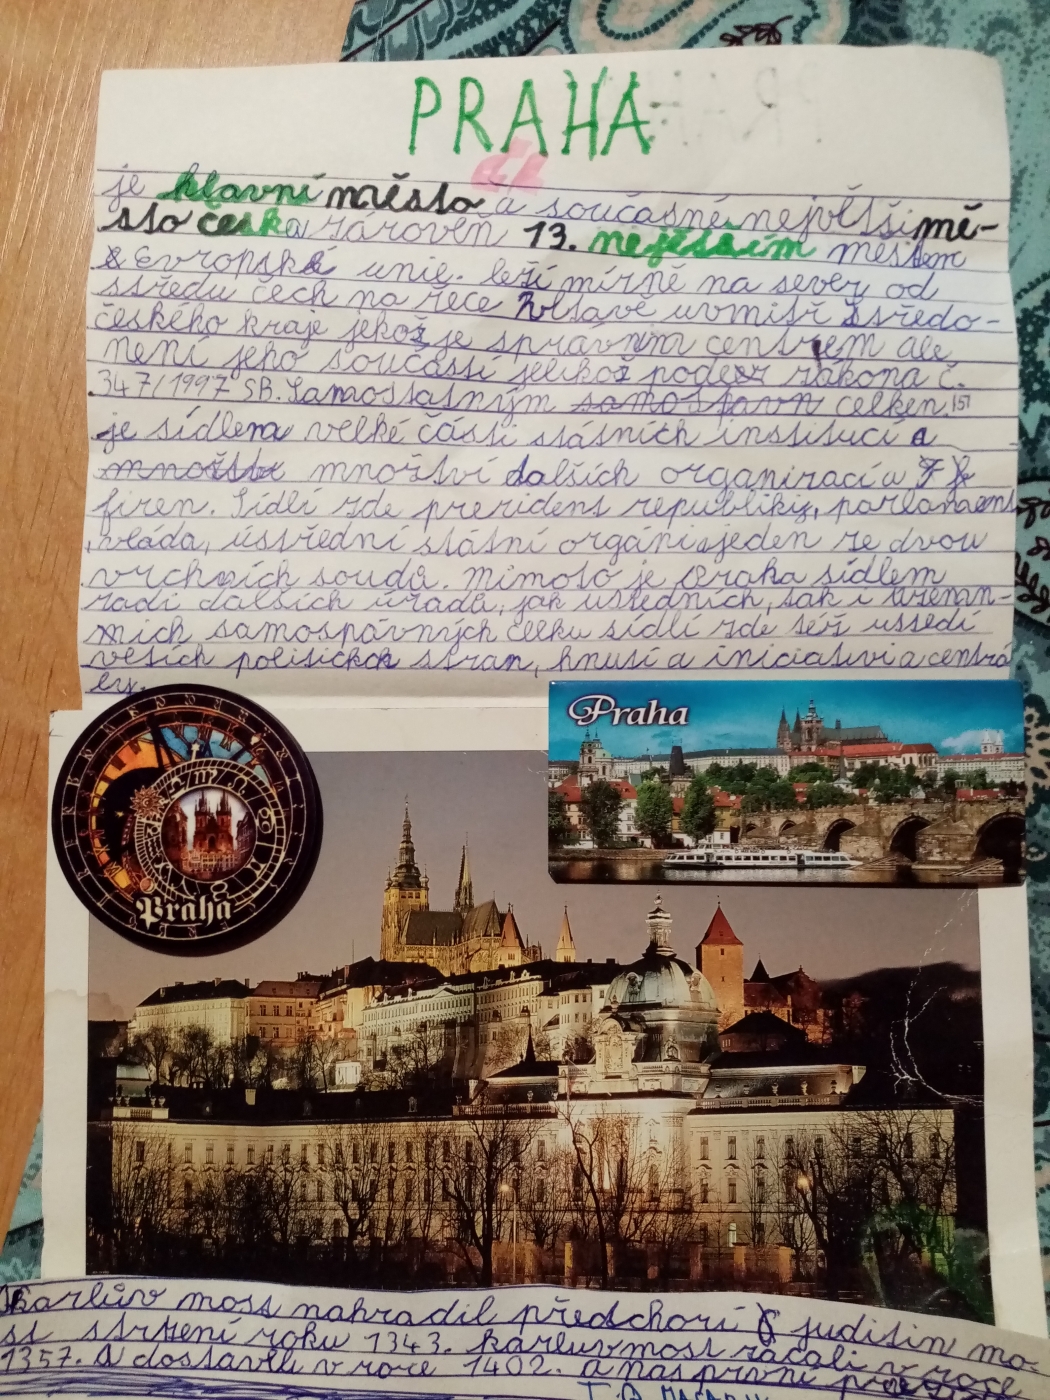 PRAHA
je hlavní město a současně největší mě-
sto česka zároveň 13. nejěsším městem
Evropské unie. leží mírně na sever od
středu čech na řece vltavě uvnitř středo-
českého kraje jehož je správním centrem ale
není jeho součástí jelikož podle zákona č.
347/1997 SB. Samostatným samospavn celken [5]
je sídlem velké části státních institucí a
množstv množství dalších organizací a
firen. Sídlí zde prezident republiky, parlament
, vláda, ústřední státní orgáni a jeden ze dvou
vrchních soudů. Mimoto je Praha sídlem
řadi dalších úřadů, jak ustředních, tak i územn-
mích samospávných celku sídlí zde též ustedí
vetších politickok stran, hnutí a iniciativ a centrá
Praha
Praha
Karlův most nahradil předchozí juditin mo-
st stržení roku 1343. karluv most začali v roce
1357. A dostavěli v roce 1402. a naš první
T. G. MASARIK